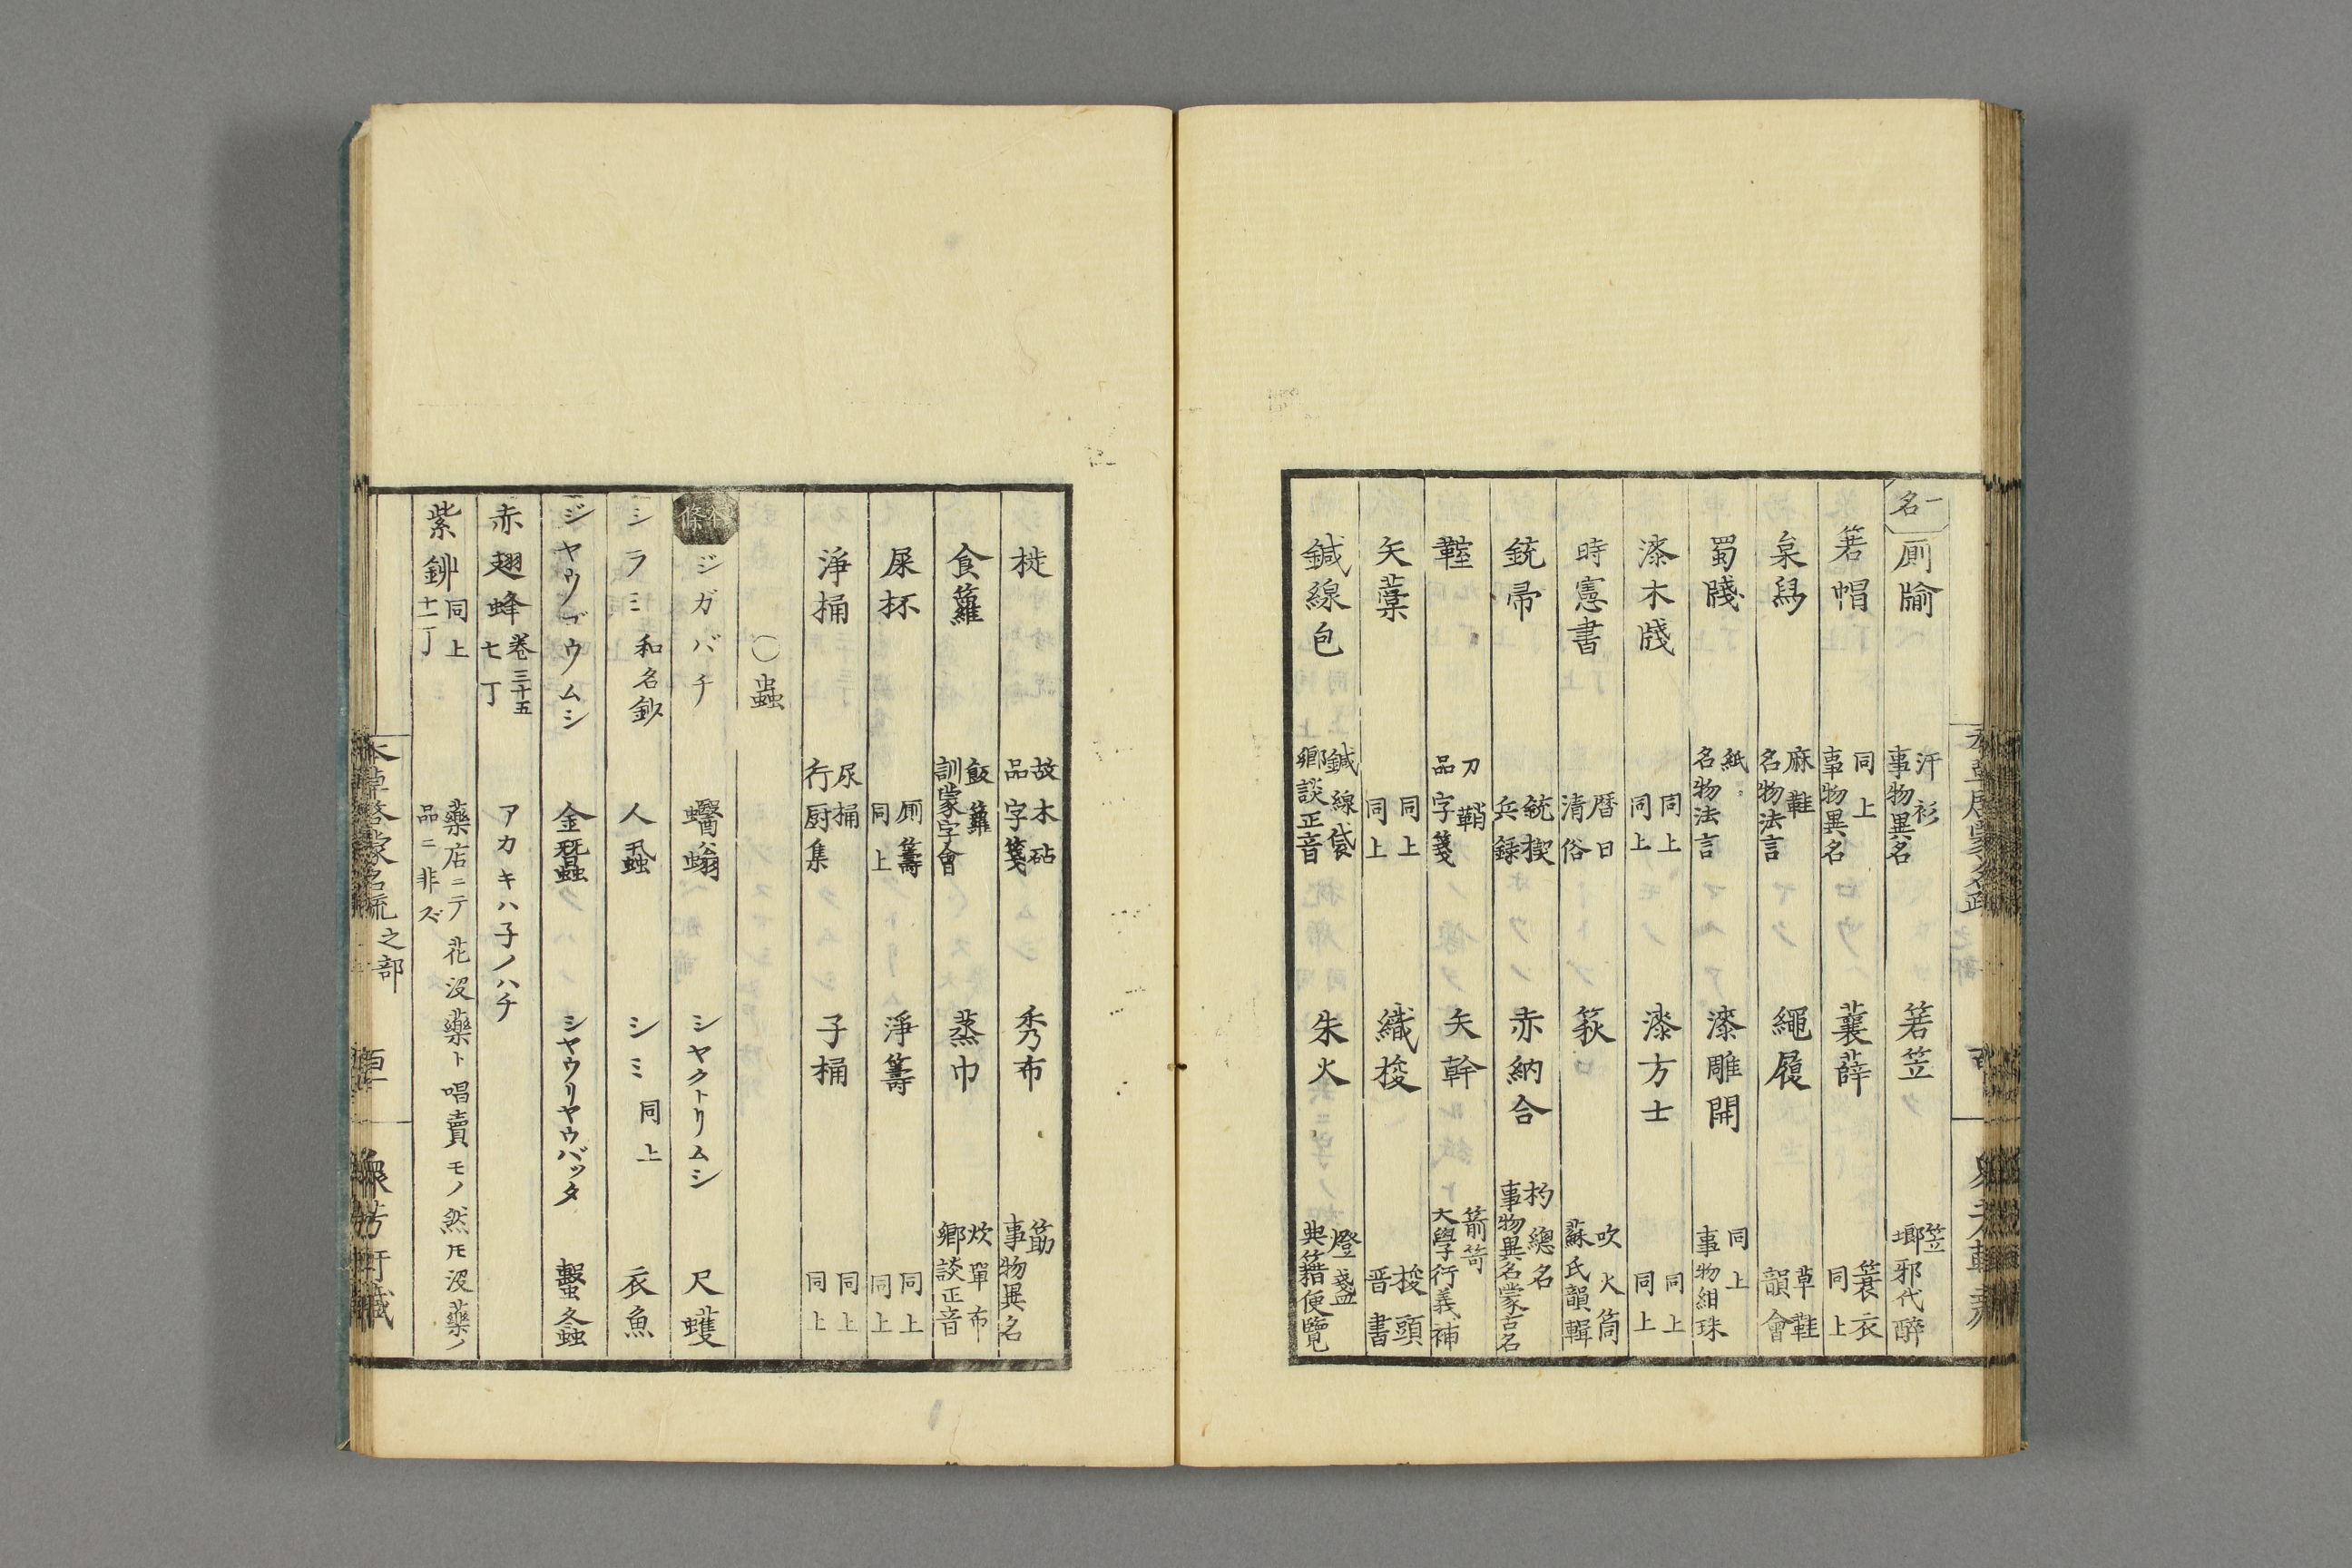 一名 厠牏 汗衫 事物異名 箬笠 笠 瑯邪代醉
箬帽 同上 事物異名 蓑薛 簑衣 同上
枲舄 麻鞋 名物法言 繩履 草鞋 韻會
蜀牋 紙 名物法言 漆雕開 同上 事物紺珠
漆木牋 同上 同上 漆方士 同上 同上
時憲書 暦日 清俗 筊 吹火筒 蘇氏韻輯
銃帚 銃楔 兵録 赤納合 杓總名 事物異名蒙古名
鞓 刀鞘 品字箋 矢幹 箭笴 大學衍義補
矢藁 同上 同上 織梭 梭頭 晋書
鍼線包 鍼線袋 鄉談正音 朱火 燈盞 典籍便覽
梽 故木砧 品字箋 秀布 筯 事物異名
食籮 飯籮 訓蒙字會 蒸巾 炊單布 鄉談正音
屎杯 厠籌 同上 淨籌 同上 同上
淨桶 尿桶 行厨集 子桶 同上 同上
〇蟲
本條 ジガバチ 蠮螉 シヤクトリムシ 尺蠖
シラミ 和名鈔 人蝨 シミ 同上 衣魚
ジヤウゴウムシ 金琵蟲 シヤウリヤウバッタ 螽
赤翅蜂 卷三十五 七丁 アカキハ子ノハチ
紫鉚 同上 十一丁 藥店ニテ花没藥ト唱賣モノ然𪜈没藥ノ品ニ非ズ
本草啓蒙名疏 之部 衆芳軒藏